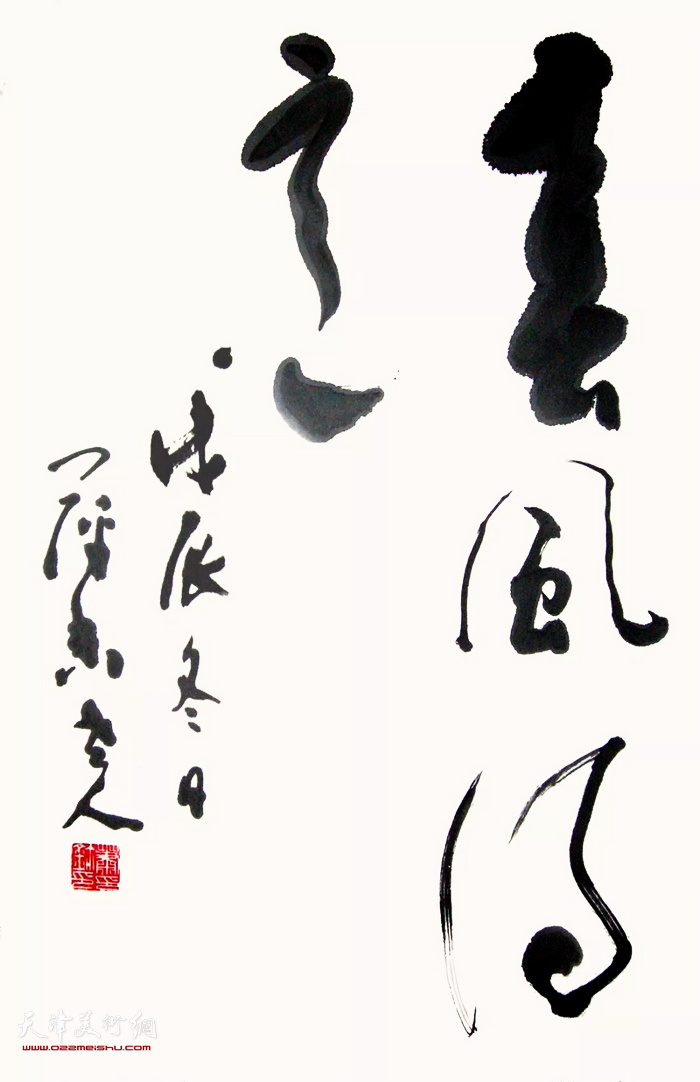 春風得
意
戊辰冬日
萍香老人
天津美術網
www.022meishu.com